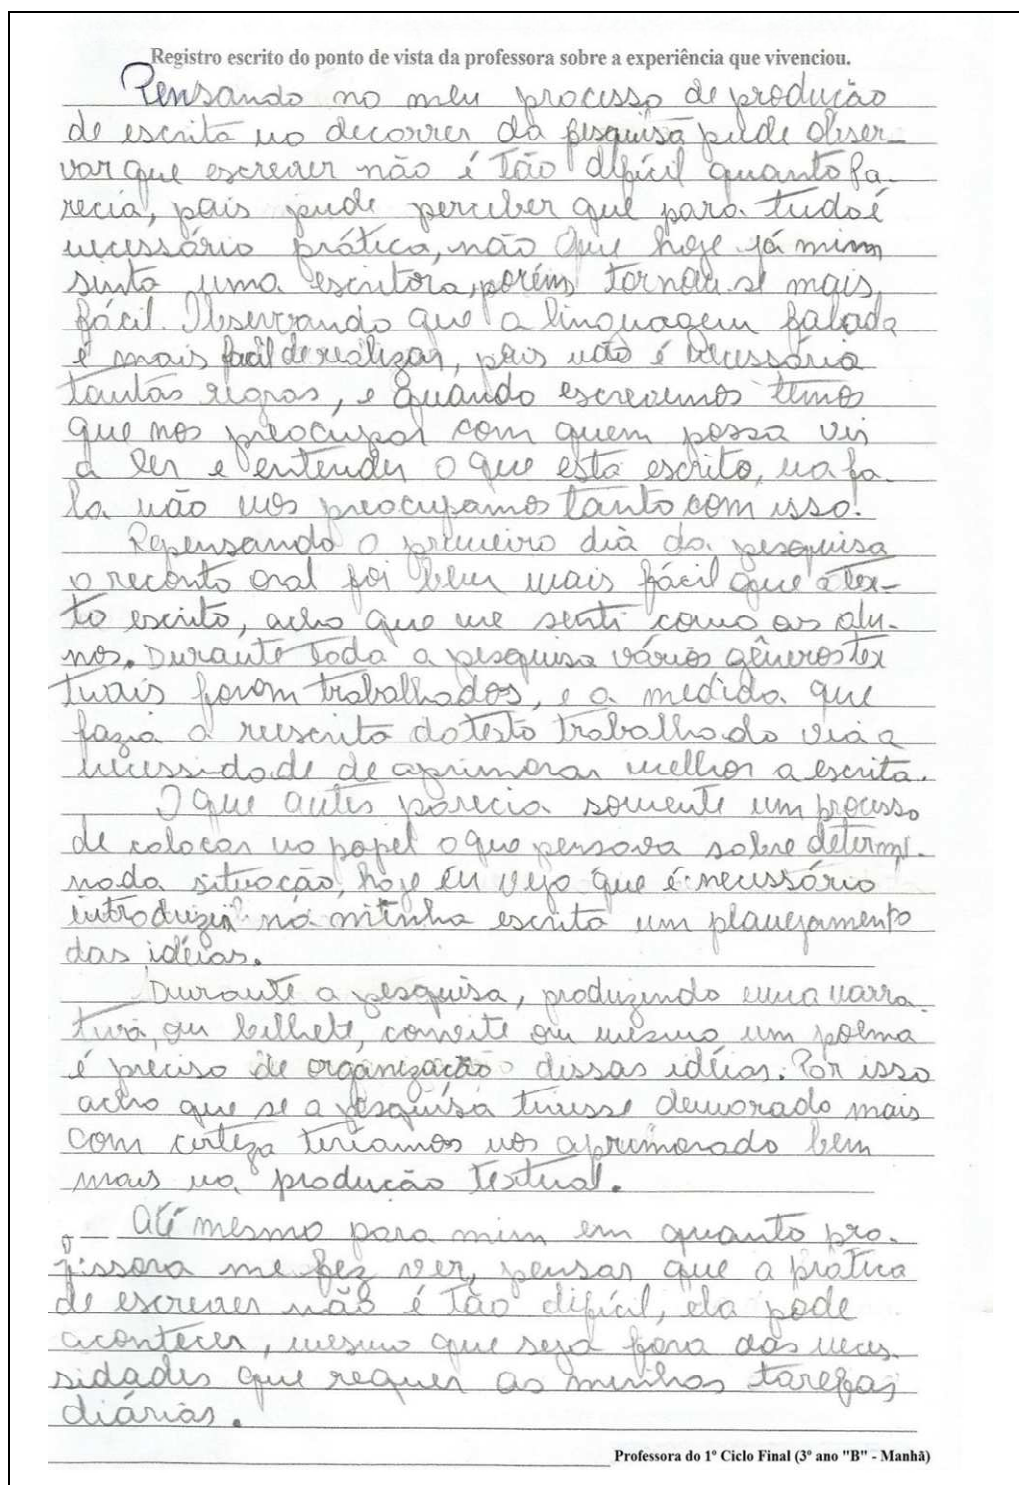 Registro escrito do ponto de vista da professora sobre a experiência que vivenciou.
Pensando no meu processo de produção
de escrita no decorrer da pesquisa pude obser-
var que escrever não é tão difícil quanto pa-
recia, pois pude perceber que para tudo é
necessário prática, não que hoje já mim
sinta uma escritora, porém tornou-se mais
fácil. Observando que a linguagem falada
é mais fácil de realizar, pois não é necessária
tantas regras, e quando escrevemos temos
que nos preocupar com quem possa vir
a ler e entender o que está escrito, na fa-
la não nos preocupamos tanto com isso.
Repensando o primeiro dia da pesquisa
o reconto oral foi bem mais fácil que a tex-
to escrito, acho que me senti como os alu-
nos. Durante toda a pesquisa vários gêneros tex
tuais foram trabalhados, e a medida que
fazia a reescrita do testo trabalhado via a
necessidade de aprimorar melhor a escrita.
O que antes parecia somente um processo
de colocar no papel o que pensava sobre determi-
nada situação, hoje eu vejo que é necessário
introduzir na minha escrita um planejamento
das idéias.
Durante a pesquisa, produzindo uma narra
tiva, ou bilhete, convite ou mesmo um poema
é preciso de organização dessas idéias. Por isso
acho que se a pesquisa tivesse demorado mais
com certeza teríamos nos aprimorado bem
mais na produção textual.
Até mesmo para mim em quanto pro-
fissora me fez ver, pensar que a prática
de escrever não é tão difícil, ela pode
acontecer, mesmo que seja fora das neces-
sidades que requer as minhas tarefas
diárias.
Professora do 1º Ciclo Final (3º ano "B" - Manhã)